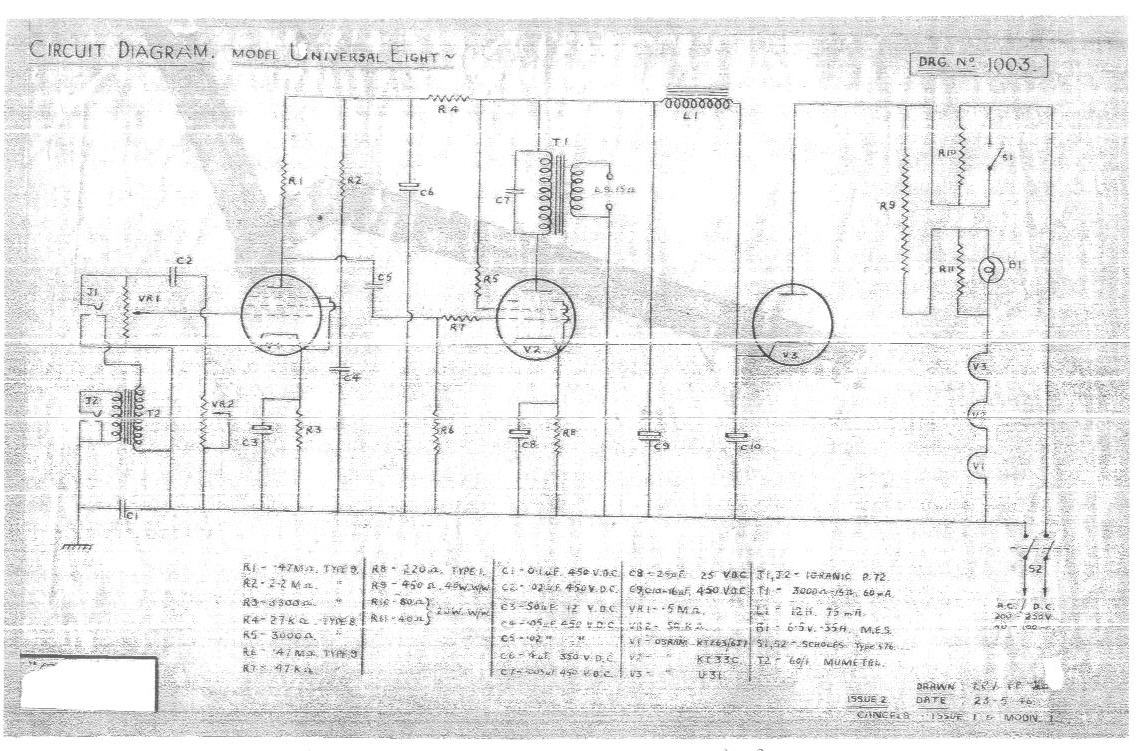 CIRCUIT DIAGRAM. MODEL UNIVERSAL EIGHT ~
DRG. Nº 1003.
R4
L1
T1
R1
R2
C6
C7
L.S. 15Ω
R10
S1
R9
C2
J1
VR1
C5
R5
R11
B1
R7
V2
V3
V3
C4
J2
T2
VR2
V2
C3
R3
R6
C8
R8
C9
C10
V1
C1
S2
R1 - ·47MΩ. TYPE 9.
R2 - 2·2 MΩ. "
R3 - 3300Ω. "
R4 - 27KΩ. TYPE 8.
R5 - 3000Ω.
R6 - ·47MΩ. TYPE 9
R7 - 47KΩ "
R8 - 220Ω. TYPE 1.
R9 - 450Ω. 40W. W/W
R10 - 80Ω }
R11 - 40Ω } 20W. W/W.
C1 - 0·1uF. 450 V.D.C.
C2 - ·02uF. 450 V.D.C.
C3 - 50uF. 12 V.D.C.
C4 - ·05uF. 450 V.D.C.
C5 - ·02 " "
C6 - 4uF. 350 V.D.C.
C7 - 450 V.D.C.
C8 - 25uF. 25 V.D.C
C9, C10 - 16uF. 450 V.D.C.
VR1 - ·5MΩ.
VR2 - 50KΩ.
V1 - OSRAM. KTZ63/6J7
V2 - " KT33C.
V3 - " U31.
J1, J2 - IGRANIC P.72.
T1 - 3000Ω-15Ω. 60mA.
L1 - 12H. 75mA.
B1 - 6·5V. ·35A. M.E.S.
S1, S2 - SCHOLES. TYPE 576.
T2 - 60/1 MUMETAL.
A.C. / D.C.
200 - 250V.
DRAWN
ISSUE 2 DATE : 23-5-46
CANCELS - ISSUE 1 & MODN. 1